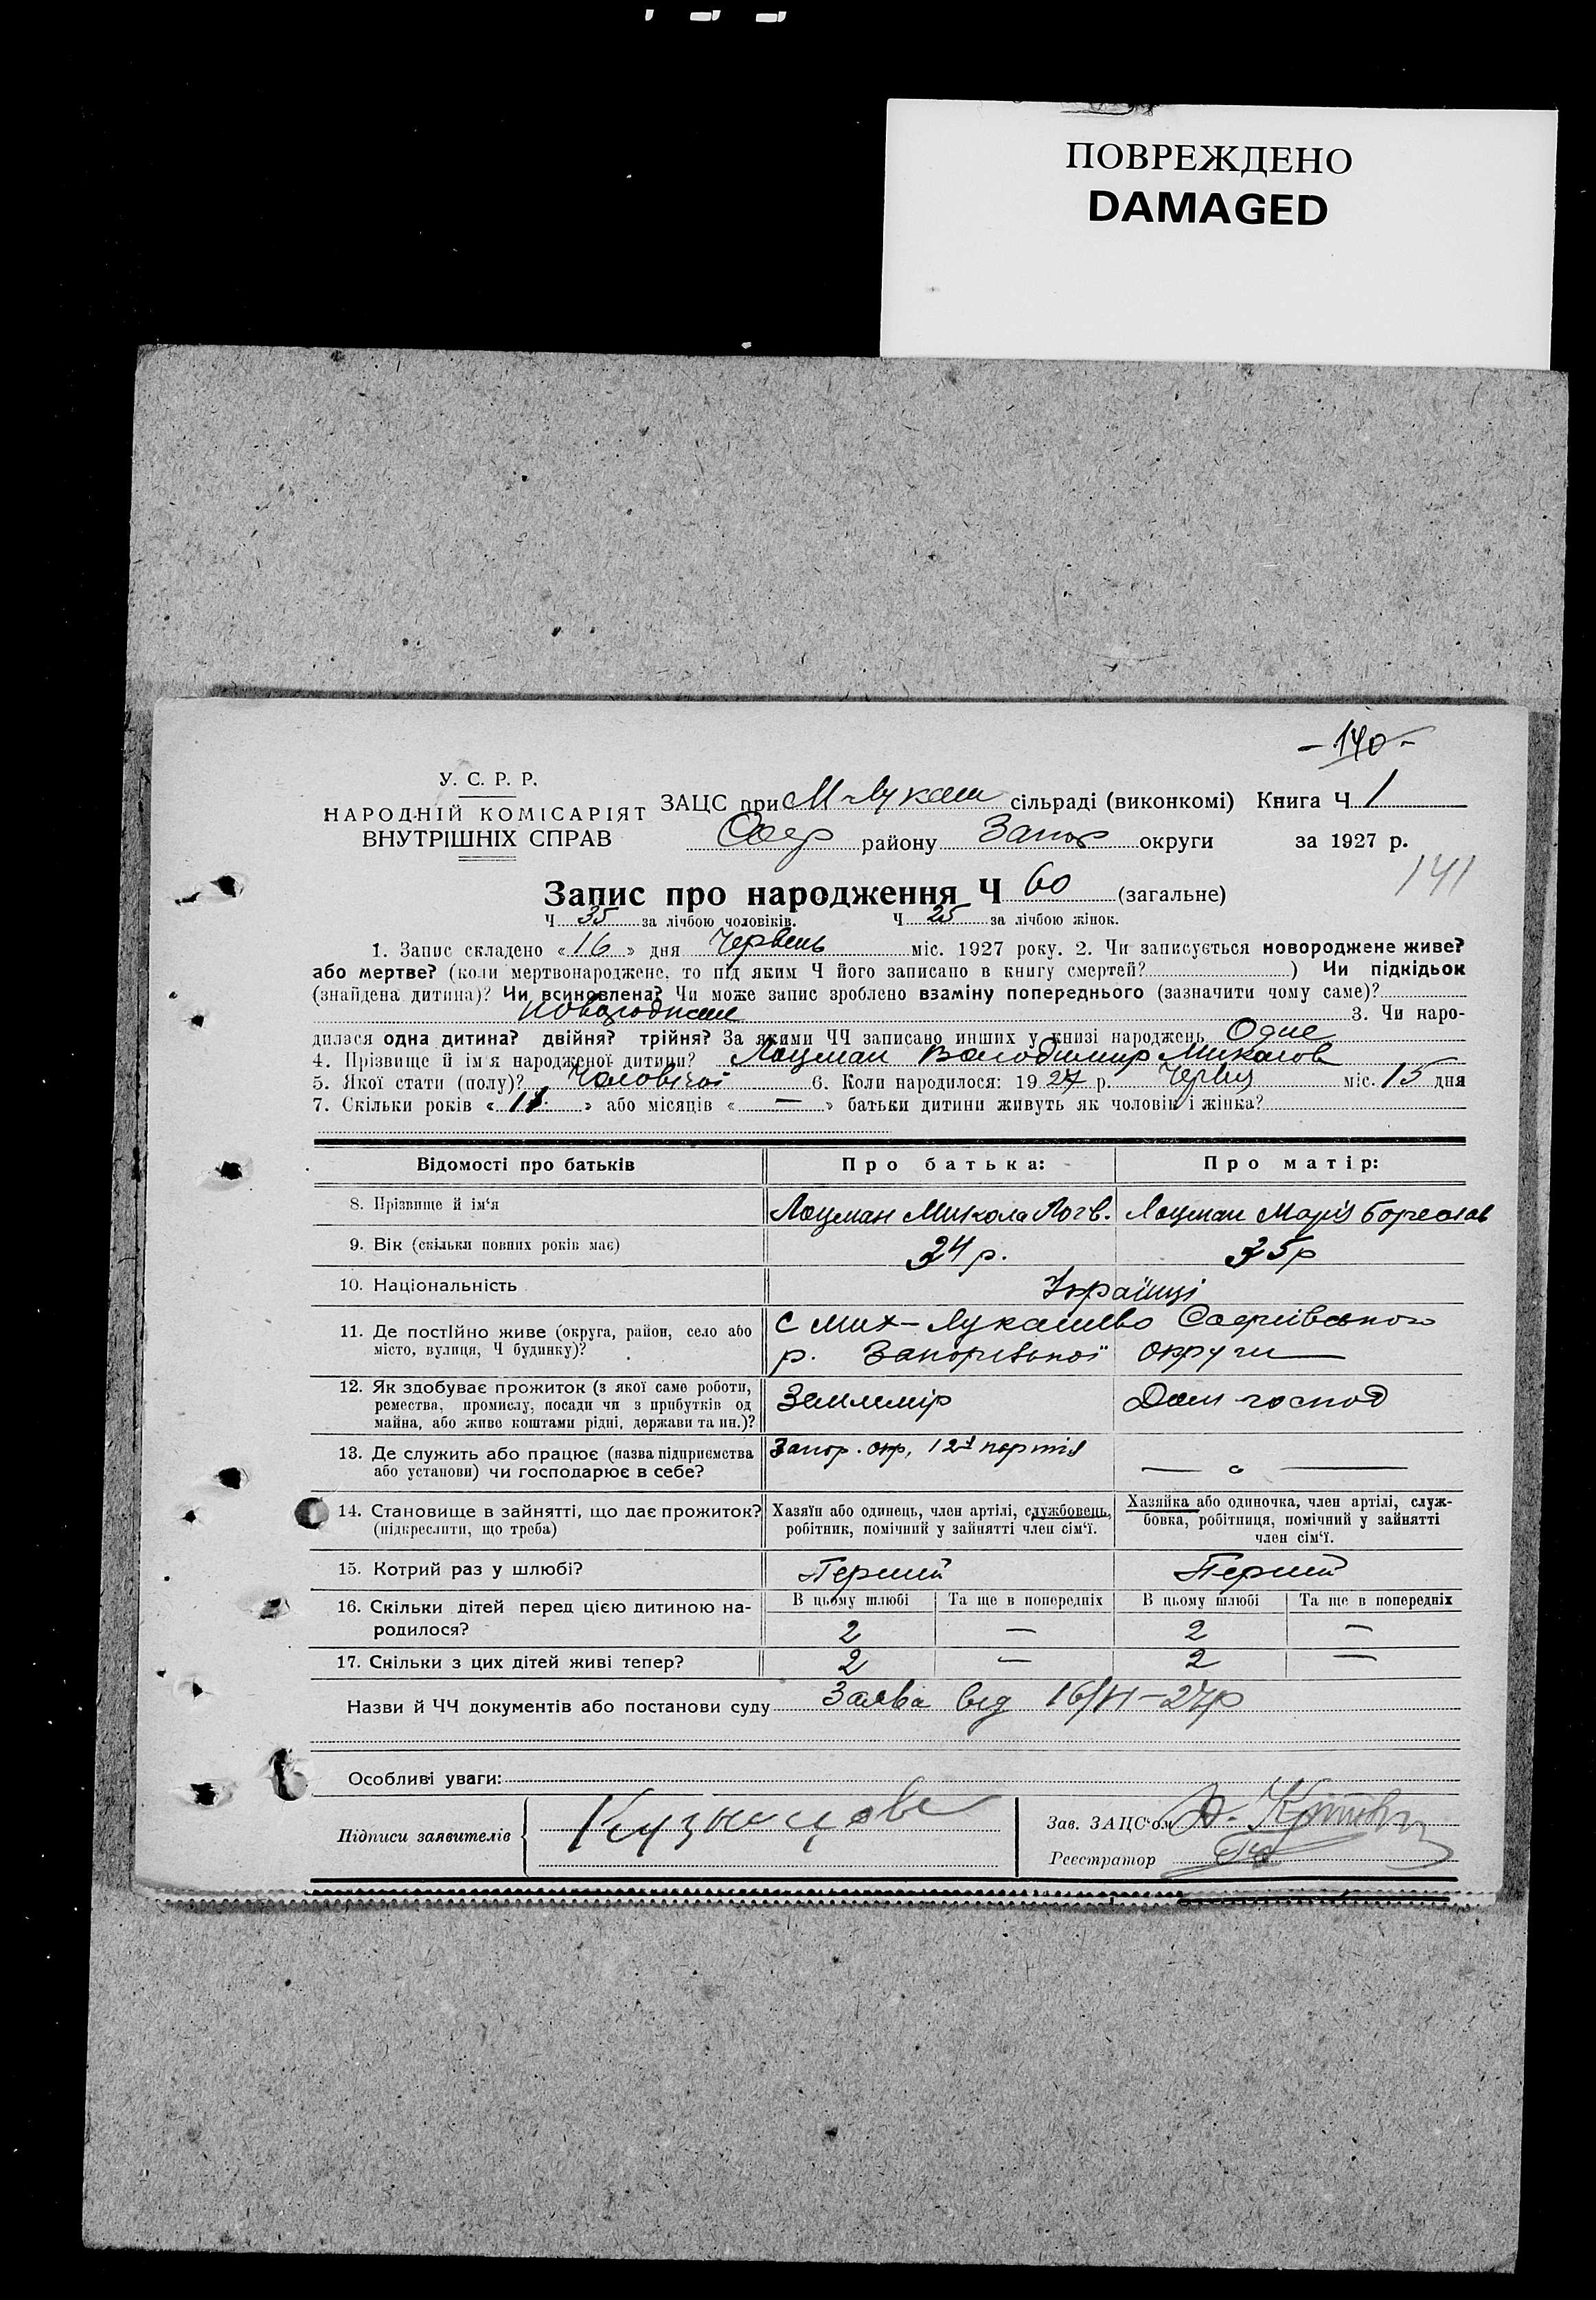 ПОВРЕЖДЕНО
DAMAGED
- 140 -
У. С. Р. Р.
НАРОДНІЙ КОМІСАРІЯТ
ВНУТРІШНІХ СПРАВ
ЗАЦС при М-Лукаш сільраді (виконкомі) Книга Ч 1
району Запор округи за 1927 р.
141
Запис про народження Ч 60 (загальне)
Ч 35 за лічбою чоловіків. Ч 25 за лічбою жінок.
1. Запис складено « 16 » дня Червень міс. 1927 року. 2. Чи записується новороджене живе?
або мертве? (коли мертвонароджене, то під яким Ч його записано в книгу смертей? ) Чи підкідьок
(знайдена дитина)? Чи всиновлена? Чи може запис зроблено взаміну попереднього (зазначити чому саме)?
3. Чи наро-
дилася одна дитина? двійня? трійня? За якими ЧЧ записано инших у книзі народжень Одне
4. Прізвище й ім'я народженої дитини? Лоцман Володимир Миколов
5. Якої стати (полу)? Чоловічої 6. Коли народилося: 1927 р. Червня міс. 15 дня
7. Скільки років « » або місяців « — » батьки дитини живуть як чоловік і жінка?
Відомості про батьків Про батька: Про матір:
8. Прізвище й ім'я Лоцман Микола Логв. Лоцман Марія
9. Вік (скільки повних років має) 34 р. 35 р
10. Національність Українці
11. Де постійно живе (округа, район, село або С Мих-Лукашево Софіївського
місто, вулиця, Ч будинку)? р. Запорізької округи
12. Як здобуває прожиток (з якої саме роботи, Землемір Дом господ
ремества, промислу, посади чи з прибутків од
майна, або живе коштами рідні, держави та ин.)?
13. Де служить або працює (назва підприємства Запор. окр, 12я партія
або установи) чи господарює в себе? — о —
14. Становище в зайнятті, що дає прожиток? Хазяїн або одинець, член артілі, службовець, Хазяйка або одиночка, член артілі, служ-
(підкреслити, що треба) робітник, помічний у зайнятті член сім'ї. бовка, робітниця, помічний у зайнятті
член сім'ї.
15. Котрий раз у шлюбі? Перший Перший
16. Скільки дітей перед цією дитиною на- В цьому шлюбі Та ще в попередніх В цьому шлюбі Та ще в попередніх
родилося? 2 — 2 —
17. Скільки з цих дітей живі тепер? 2 — 2 —
Назви й ЧЧ документів або постанови суду Заява від 16/VI-27р
Особливі уваги:
Підписи заявителів Кузнецова Зав. ЗАЦС'ом
Реєстратор